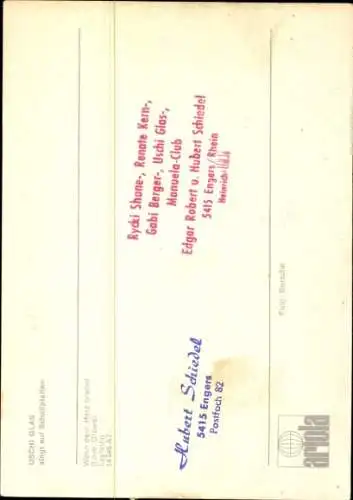 USCHI GLAS
singt auf Schallplatten
Wenn dein Herz brennt
Rycki Shane-, Renate Kern-,
Gabi Berger-, Uschi Glas-,
Manuela-Club
Edgar Robert u. Hubert Schiedel
5415 Engers/Rhein
Heinrich
Hubert Schiedel
5415 Engers
Postfach 82
Foto:
ariola